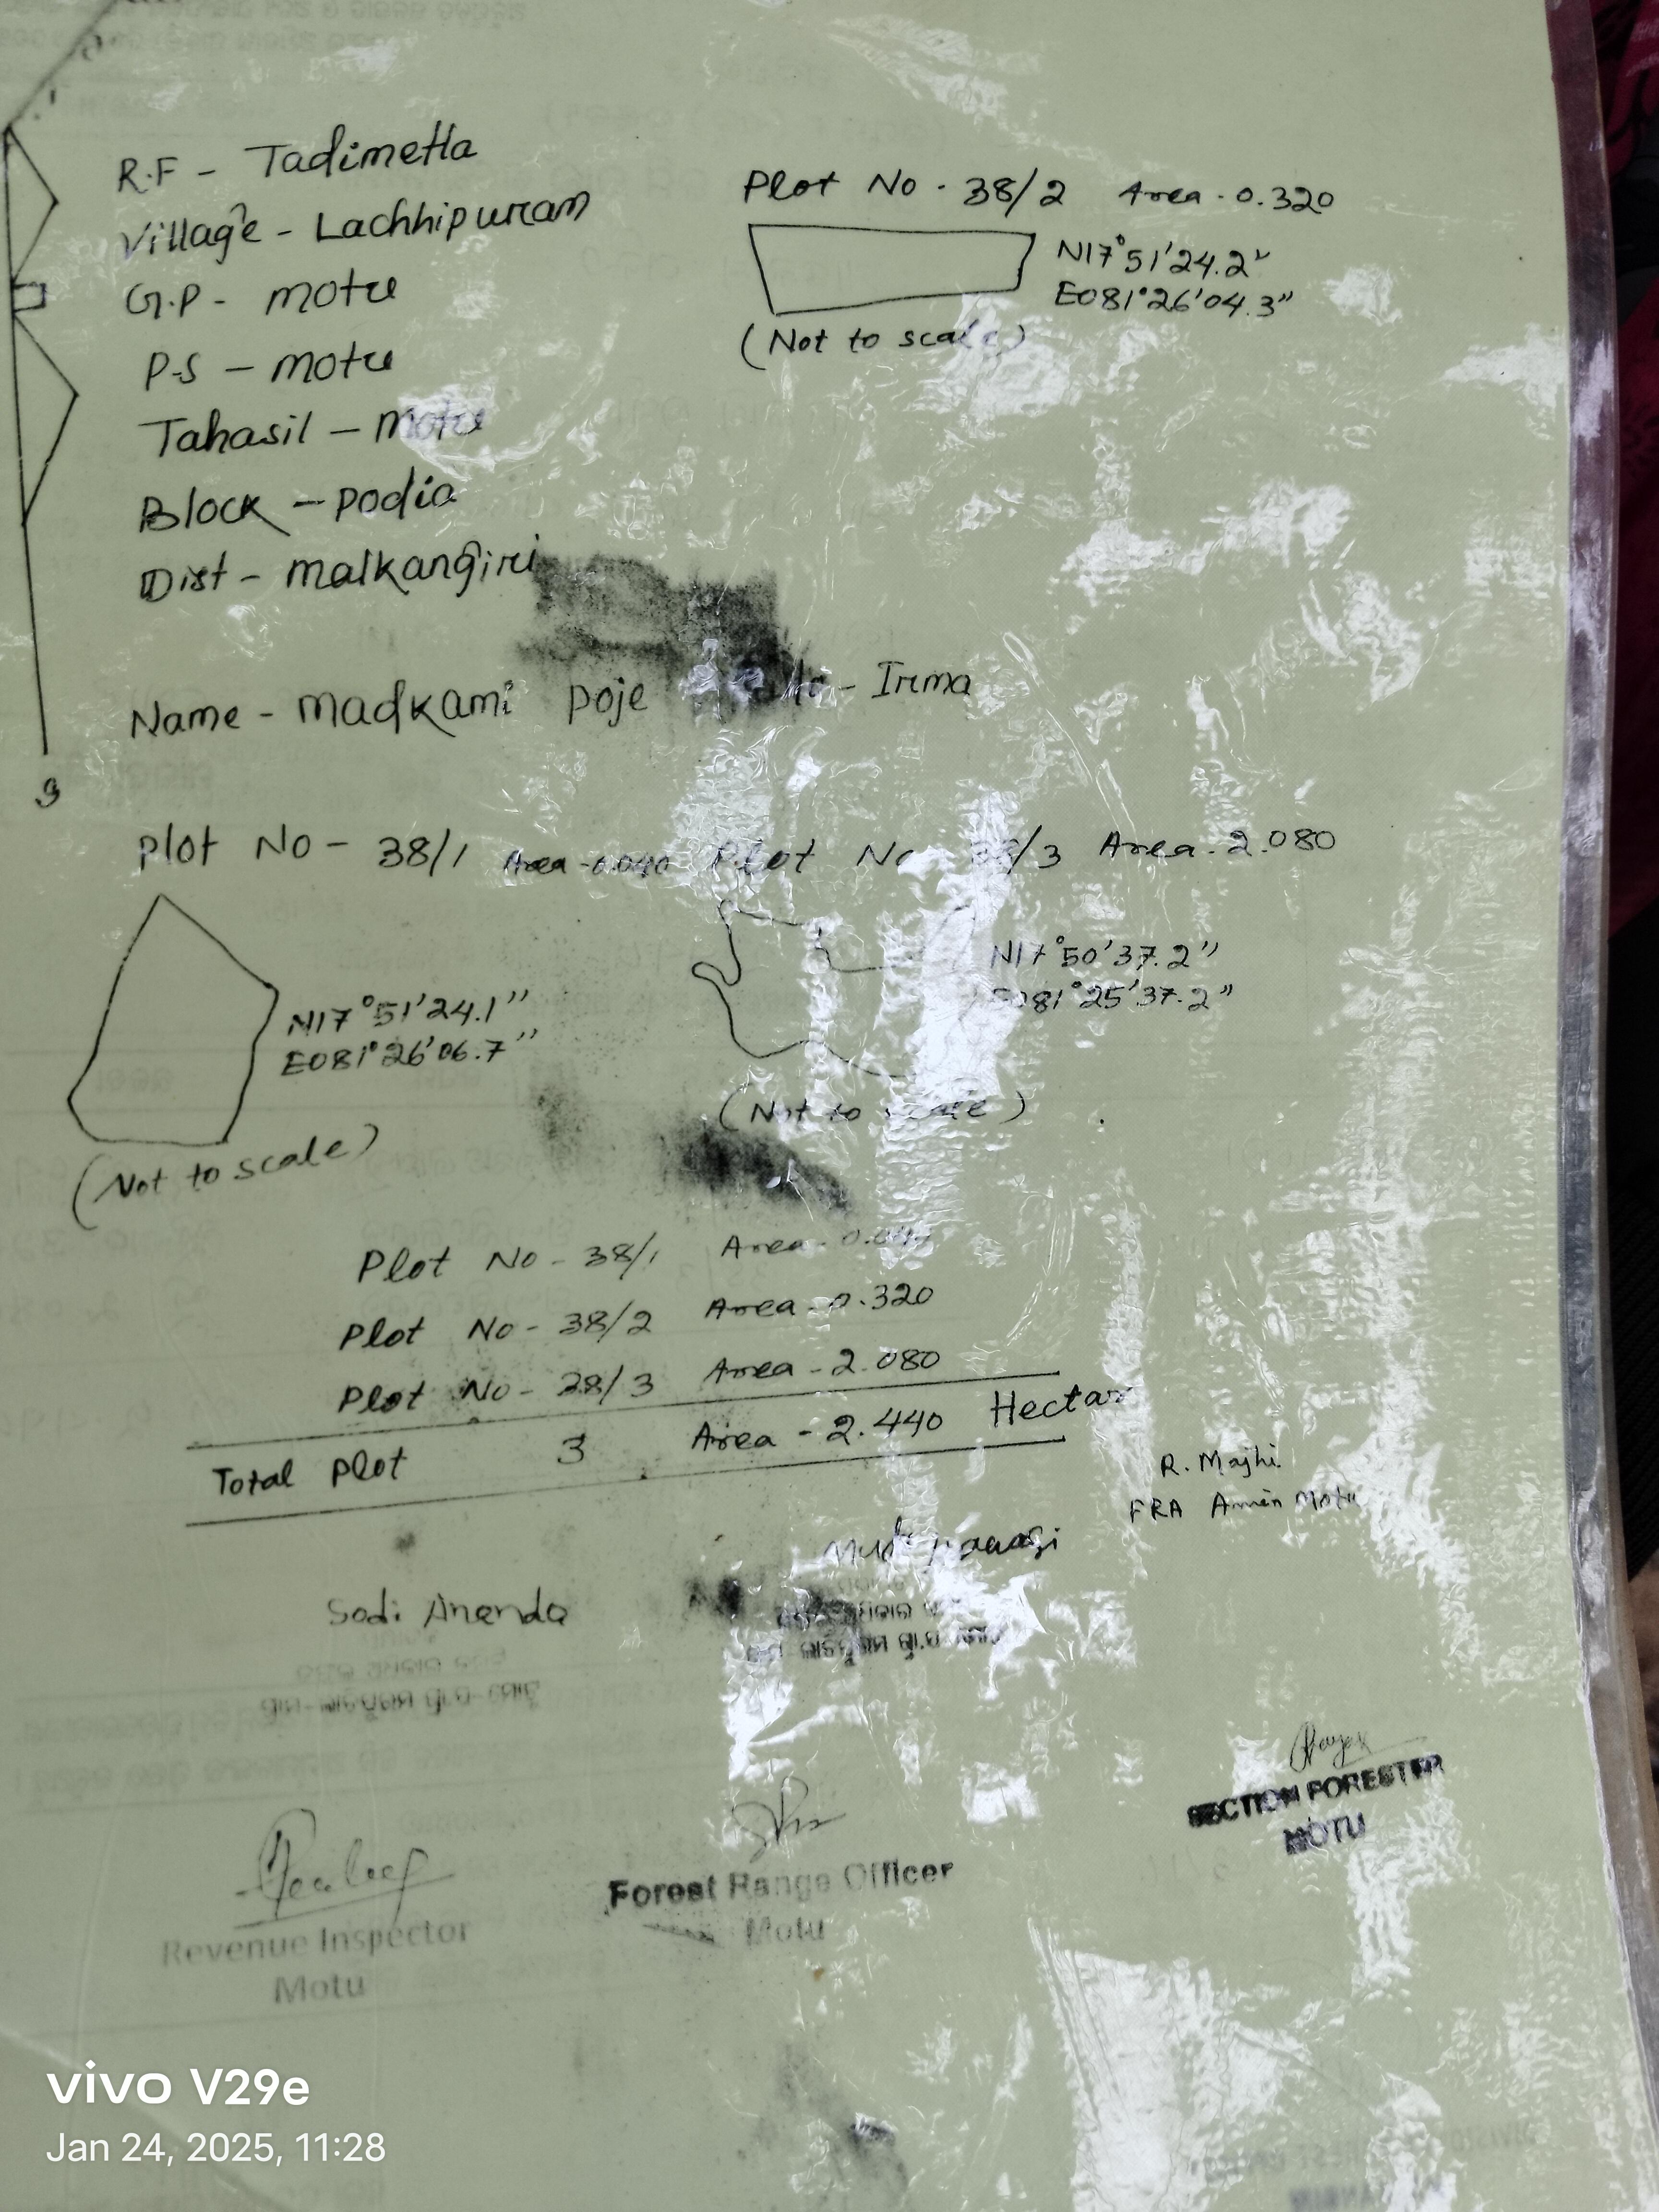 R.F - Tadimetla
Village - Lachhipuram
G.P - motu
P.S - motu
Tahasil - motu
Block - podia
Dist - malkangiri
Plot No - 38/2 Area - 0.320
N17°51'24.2"
E081°26'04.3"
(Not to scale)
Name - madkami poje - Irma
9
Plot No - 38/1 Area - 0.040
N17°51'24.1"
E081°26'06.7"
(Not to scale)
Plot No 38/3 Area - 2.080
N17°50'37.2"
E081°25'37.2"
(Not to scale)
Plot No - 38/1 Area - 0.040
Plot No - 38/2 Area - 0.320
Plot No - 38/3 Area - 2.080
Total plot 3 Area - 2.440 Hectar
R. Majhi
FRA Amin Motu
Sodi Ananda
SECTION FORESTER
MOTU
Forest Range Officer
Motu
Revenue Inspector
Motu
vivo V29e
Jan 24, 2025, 11:28